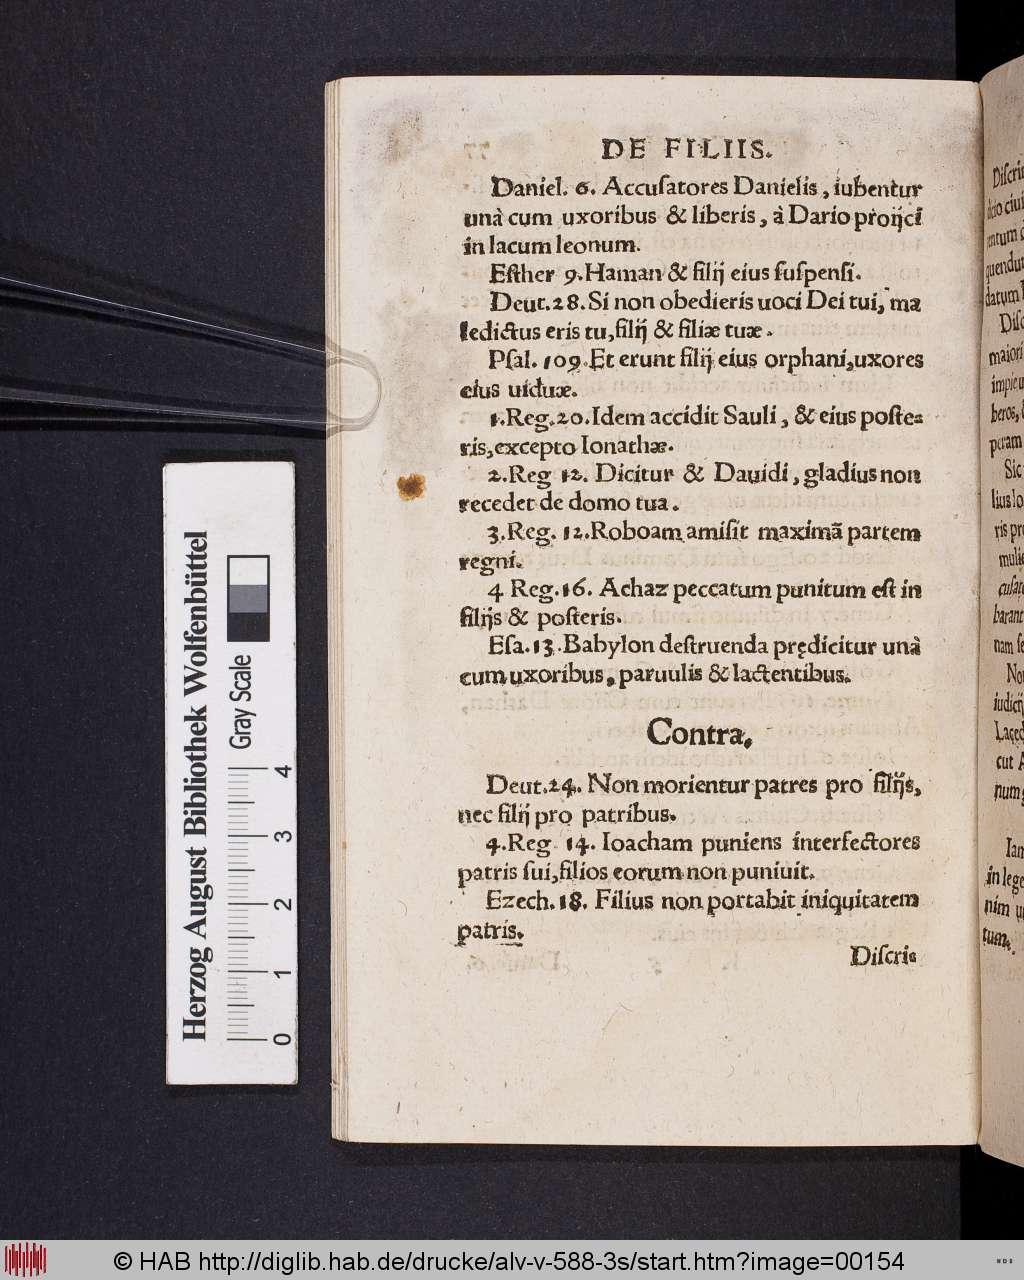 DE FILIIS.
Daniel. 6. Accuſatores Danielis, iubentur
unà cum uxoribus & liberis, à Dario proijci
in lacum leonum.
Eſther 9. Haman & filij eius ſuſpenſi.
Deut. 28. Si non obedieris uoci Dei tui, ma
ledictus eris tu, filij & filiæ tuæ.
Pſal. 109. Et erunt filij eius orphani, uxores
eius uiduæ.
1. Reg. 20. Idem accidit Sauli, & eius poſte-
ris, excepto Ionathæ.
2. Reg 12. Dicitur & Dauidi, gladius non
recedet de domo tua.
3. Reg. 12. Roboam amiſit maximã partem
regni.
4 Reg. 16. Achaz peccatum punitum eſt in
filijs & poſteris.
Eſa. 13. Babylon deſtruenda prędicitur unà
cum uxoribus, paruulis & lactentibus.
Contra.
Deut. 24. Non morientur patres pro filijs,
nec filij pro patribus.
4. Reg 14. Ioacham puniens interfectores
patris ſui, filios eorum non puniuit.
Ezech. 18. Filius non portabit iniquitatem
patris.
Diſcri-
Herzog August Bibliothek Wolfenbüttel
Gray Scale
0 1 2 3 4
© HAB http://diglib.hab.de/drucke/alv-v-588-3s/start.htm?image=00154